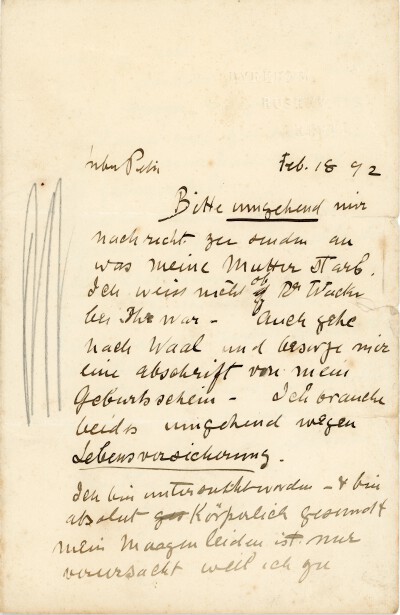 Lieber Peter Feb. 18 92
Bitte umgehend mir
nachricht zu senden an
was meine Mutter starb.
Ich weiss nicht ob Dr Wacker
bei Ihr war - Auch gehe
nach Waal und besorge mir
eine abschrift von mein
Geburtsschein - Ich brauche
beides umgehend wegen
Lebensversicherung.
Ich bin untersucht worden - & bin
absolut Körperlich gesund &
mein Maagenleiden ist nur
verursacht weil ich zu